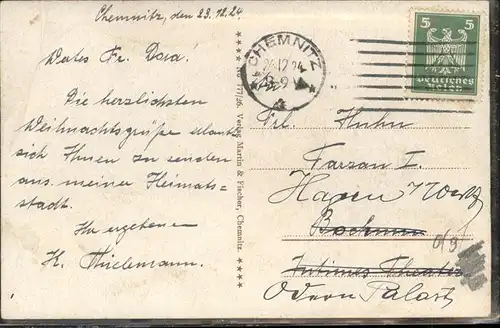 Chemnitz, den 23.12.24.
Wertes Frl. Dora!
Die herzlichsten
Weihnachtsgrüße erlaubt
sich Ihnen zu senden
aus meiner Heimats=
stadt.
Ihr ergebener
K. Thielemann.
Verlag Martin & Fischer, Chemnitz.
CHEMNITZ
24.12.24
5 5
Deutsches
Reich
Frl. Huhn
Tarzan I.
Hagen i Westf
Bochum
Intimes Theater
Odeon Palast